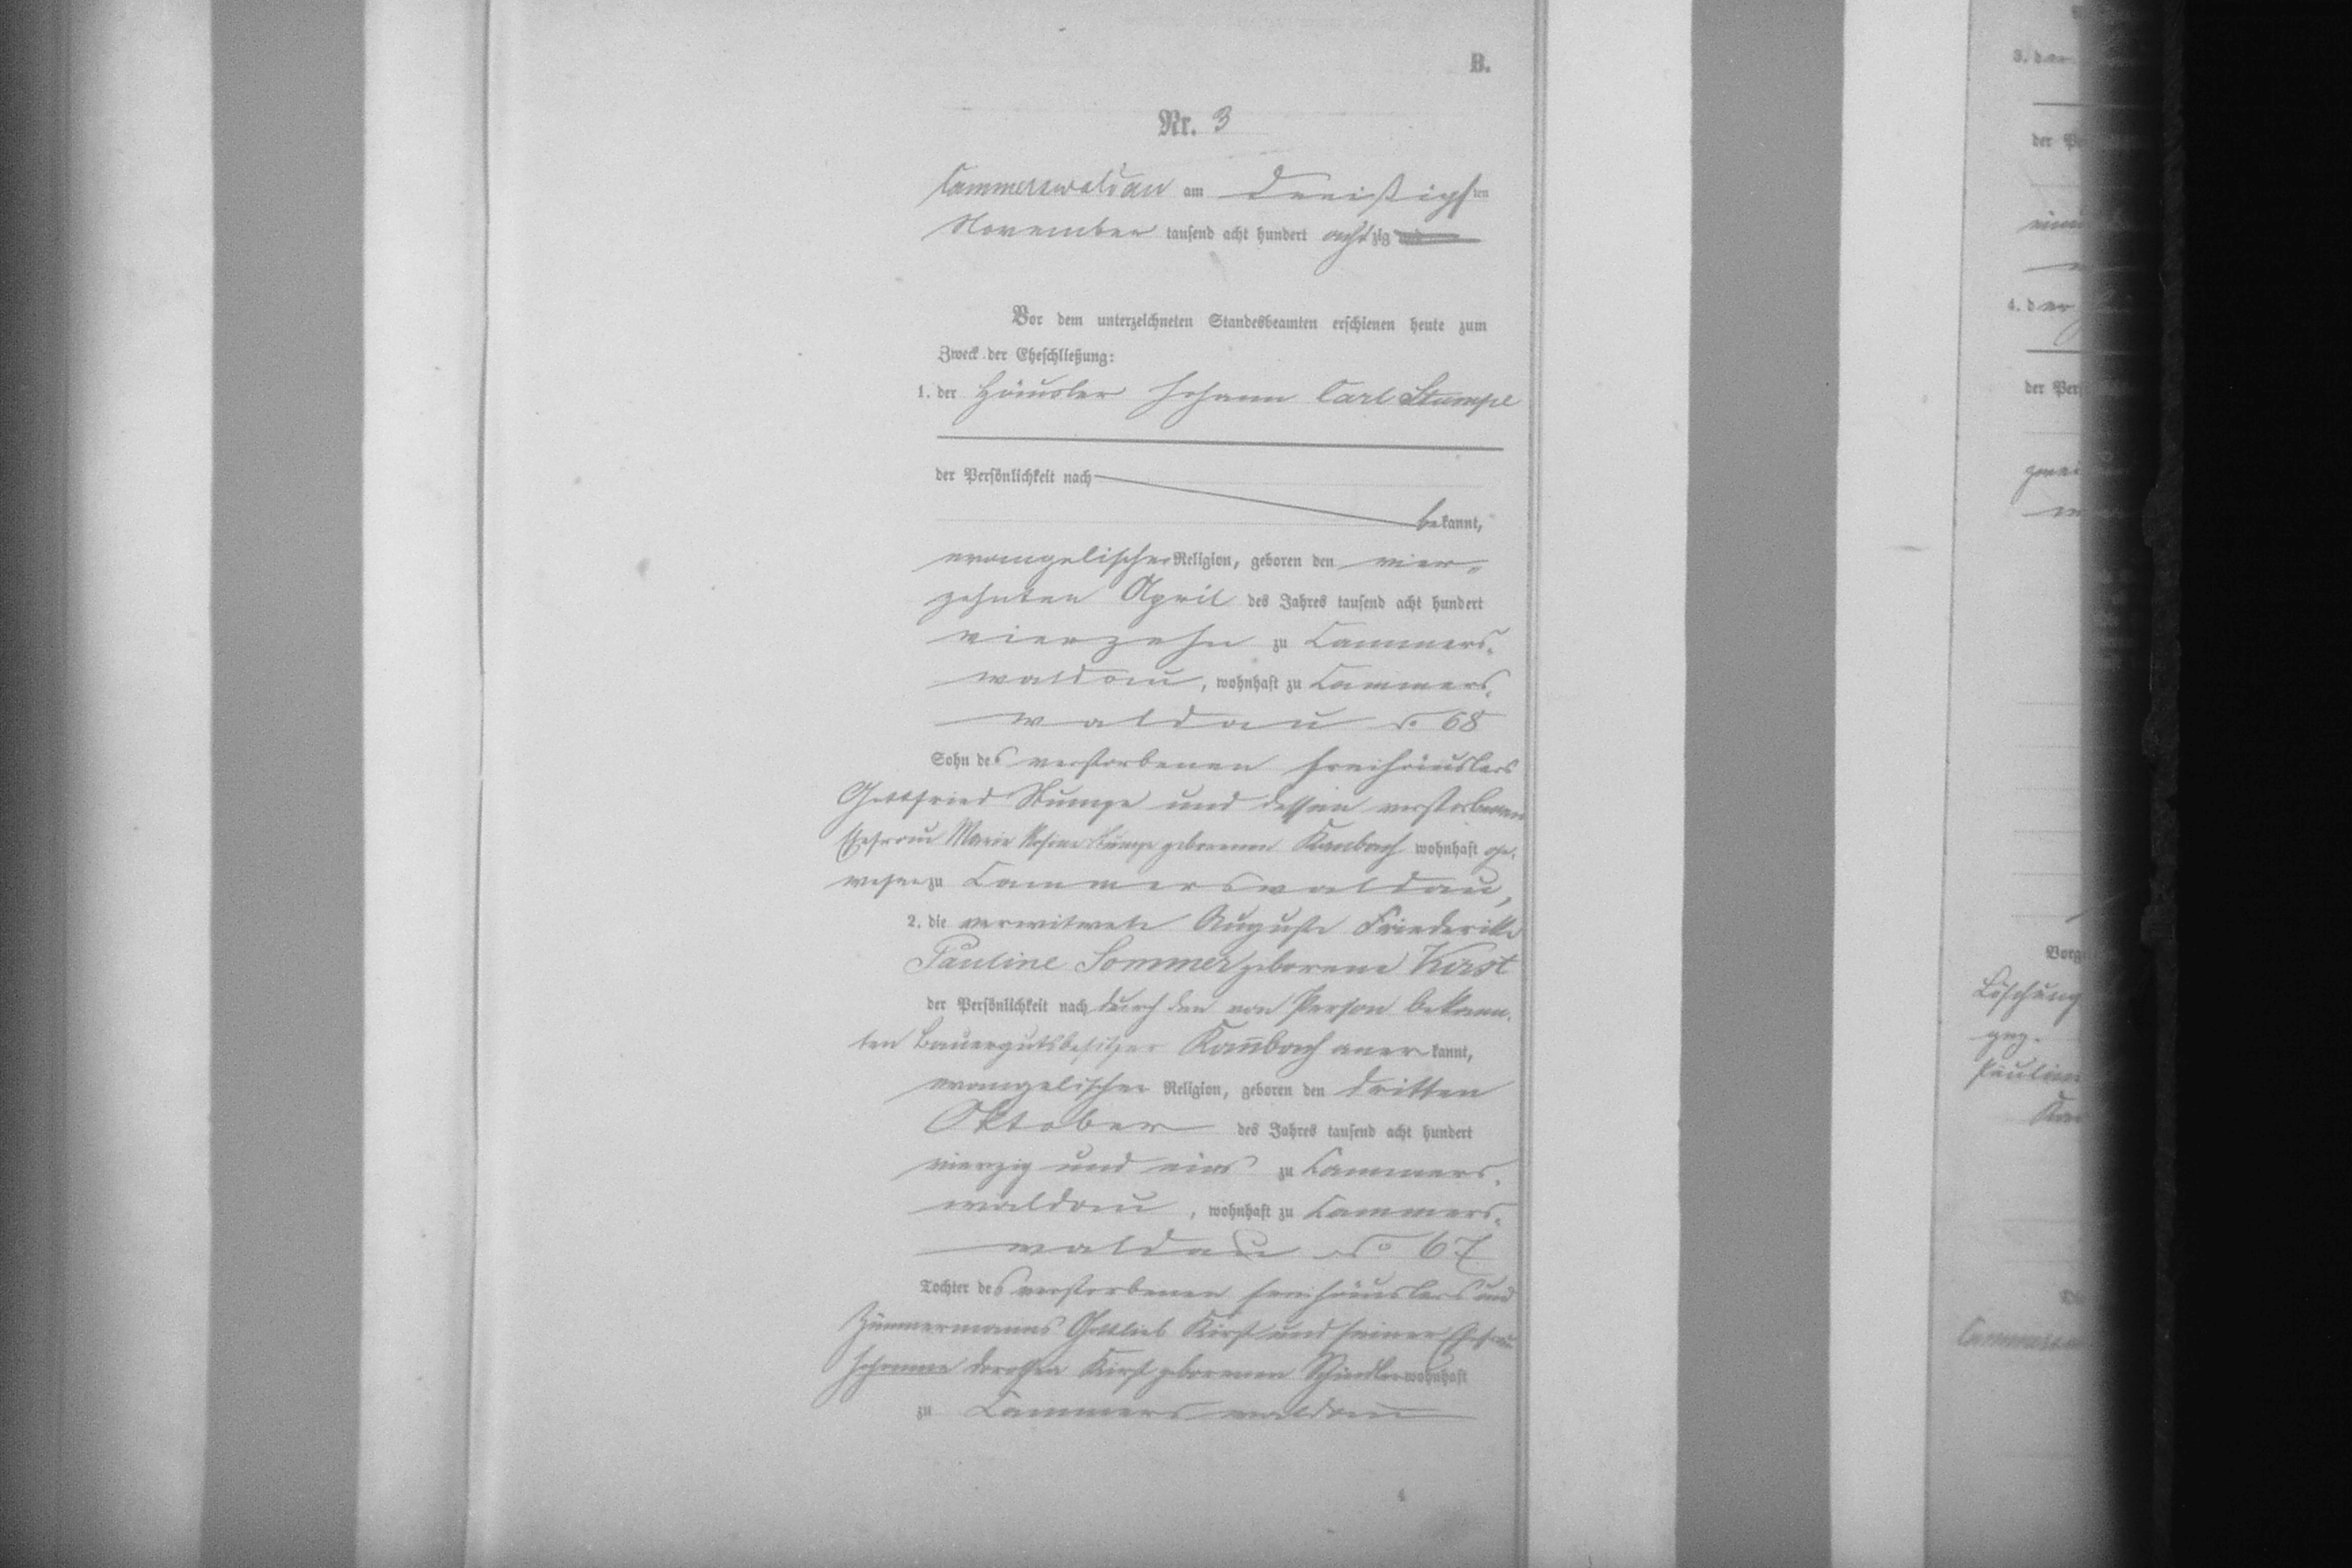 B.
Nr. 3
Cammerswaldau am dreißigsten
November tausend acht hundert achtzig und
Vor dem unterzeichneten Standesbeamten erschienen heute zum
Zweck der Eheschließung:
1. der Häusler Johann Carl Stumpe
der Persönlichkeit nach
bekannt,
evangelischer Religion, geboren den vier-
zehnten April des Jahres tausend acht hundert
vierzehn zu Cammers-
waldau, wohnhaft zu Cammers-
waldau No 68
Sohn des verstorbenen Freihäuslers
Gottfried Stumpe und dessen verstorbenen
Ehefrau Marie Rosine Stumpe geborenen wohnhaft ge-
wesen zu Cammerswaldau,
2. die verwitwete Auguste Friederike
Pauline Sommer geborene Kirst
der Persönlichkeit nach durch den von Person bekann-
ten Bauergutsbesitzer Kambach anerkannt,
evangelischer Religion, geboren den dritten
Oktober des Jahres tausend acht hundert
vierzig und eins zu Cammers-
waldau, wohnhaft zu Cammers-
waldau No 67
Tochter des verstorbenen Freihäuslers und
Zimmermanns Gottlieb Kirst und seiner Ehefrau
Johanne Dorothea Kirst geborenen wohnhaft
zu Cammerswaldau
4
3. der
der Pe
4. der
der Pers
Vorg
Löschung
gez.
Pauline